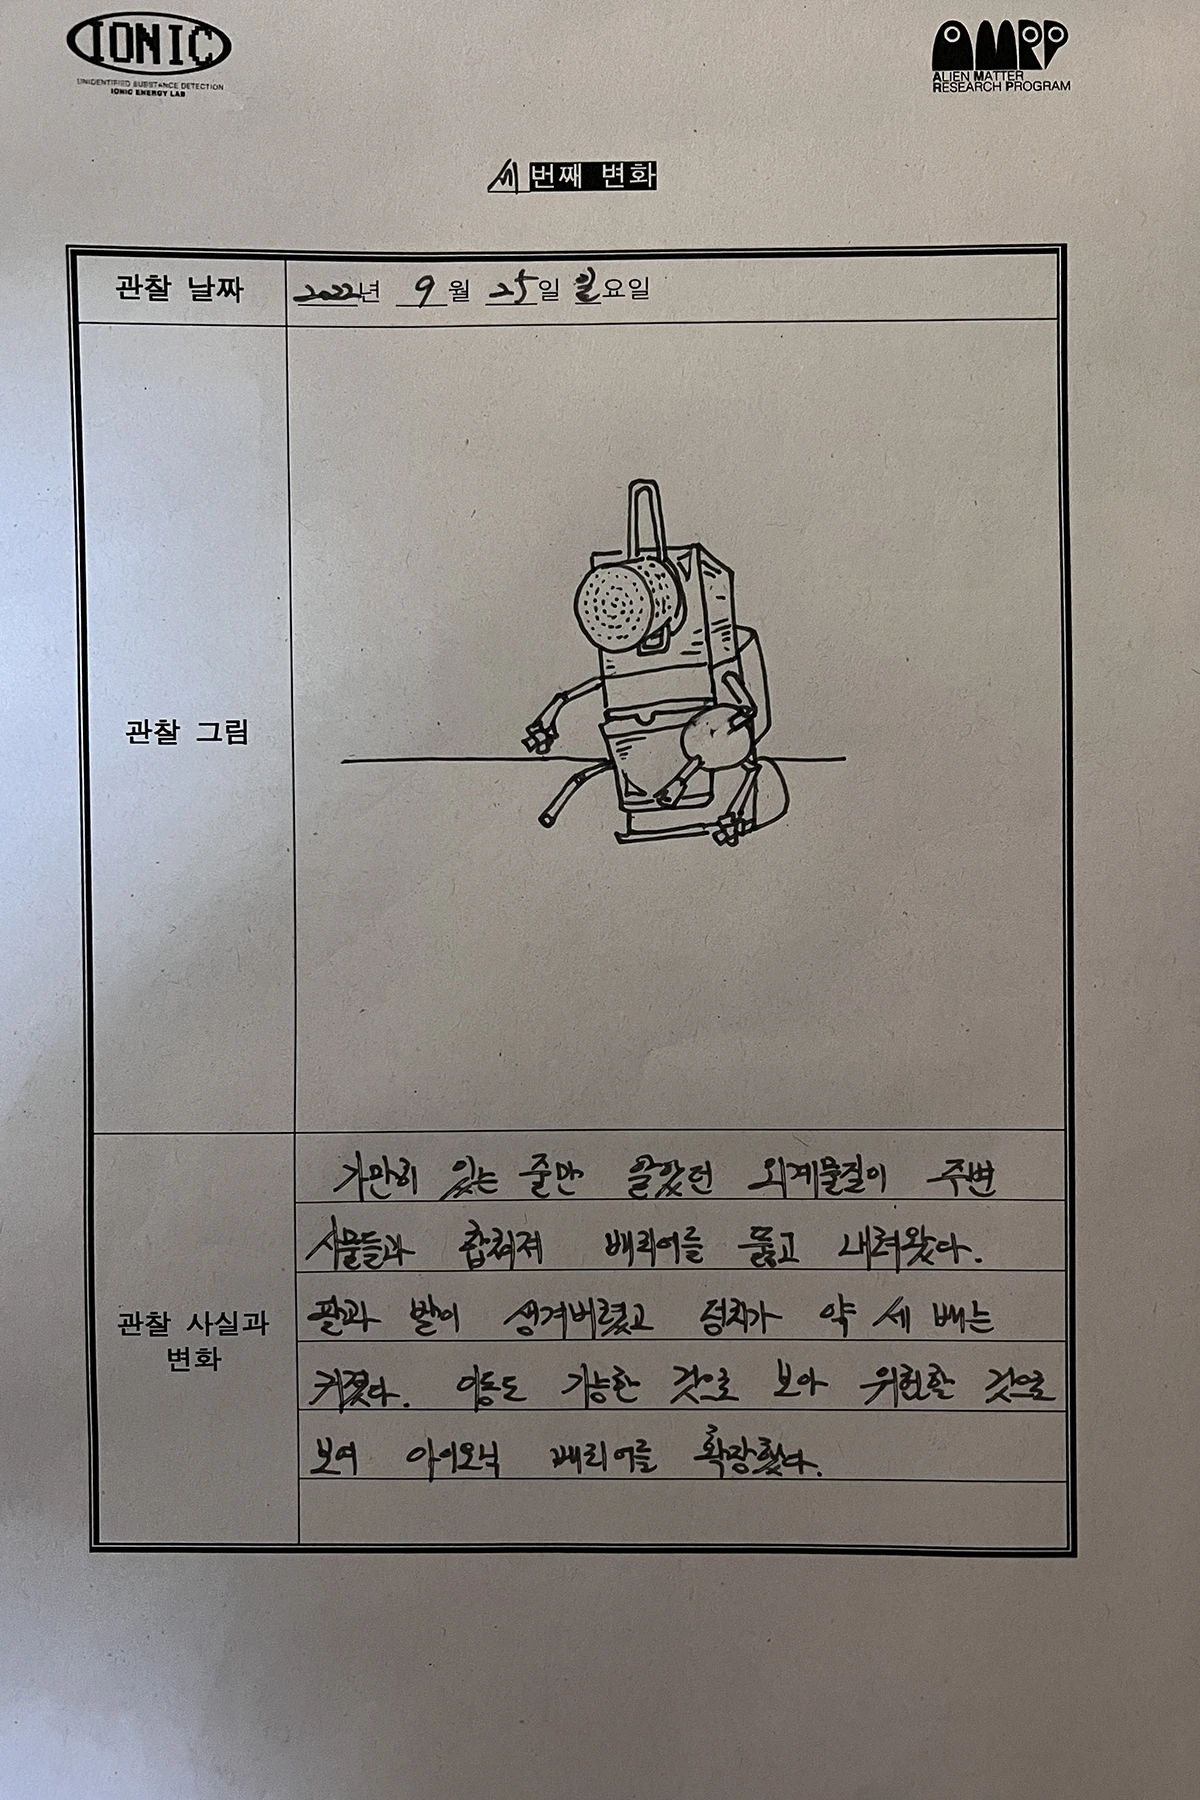 IONIC
UNIDENTIFIED SUBSTANCE DETECTION
IONIC ENERGY LAB
AMRP
ALIEN MATTER
RESEARCH PROGRAM
세 번째 변화
관찰 날짜
2022년 9월 25일 일요일
관찰 그림
관찰 사실과
변화
가만히 있는 줄만 알았던 외계물질이 주변
사물들과 합쳐져 배리어를 뚫고 내려왔다.
팔과 발이 생겨버렸고 덩치가 약 세 배는
커졌다. 이동도 가능한 것으로 보아 위험할 것으로
보여 아이오닉 배리어를 확장했다.